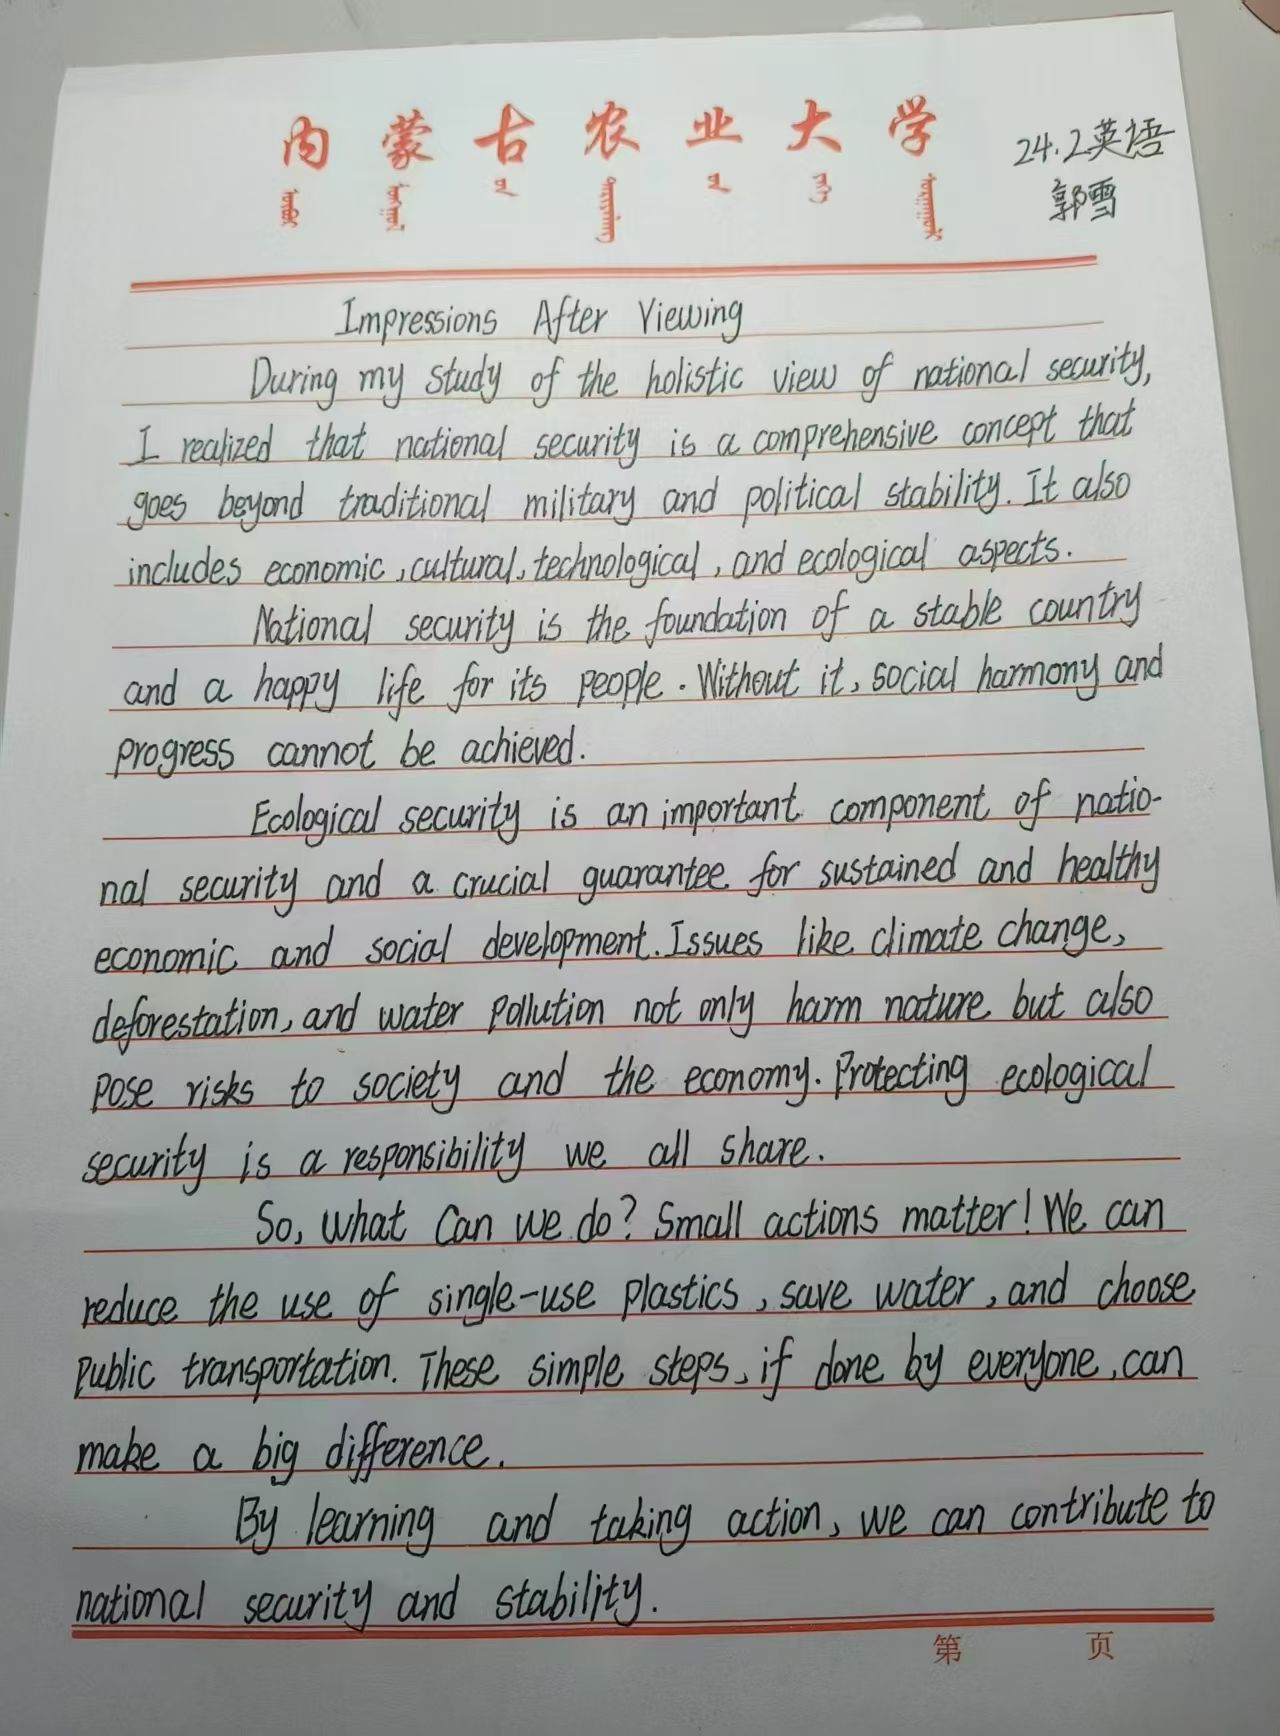 内蒙古农业大学
24.2英语
郭雪
Impressions After Viewing
During my study of the holistic view of national security,
I realized that national security is a comprehensive concept that
goes beyond traditional military and political stability. It also
includes economic, cultural, technological, and ecological aspects.
National security is the foundation of a stable country
and a happy life for its people. Without it, social harmony and
progress cannot be achieved.
Ecological security is an important component of natio-
nal security and a crucial guarantee for sustained and healthy
economic and social development. Issues like climate change,
deforestation, and water pollution not only harm nature but also
pose risks to society and the economy. Protecting ecological
security is a responsibility we all share.
So, what can we do? Small actions matter! We can
reduce the use of single-use plastics, save water, and choose
public transportation. These simple steps, if done by everyone, can
make a big difference.
By learning and taking action, we can contribute to
national security and stability.
第 页